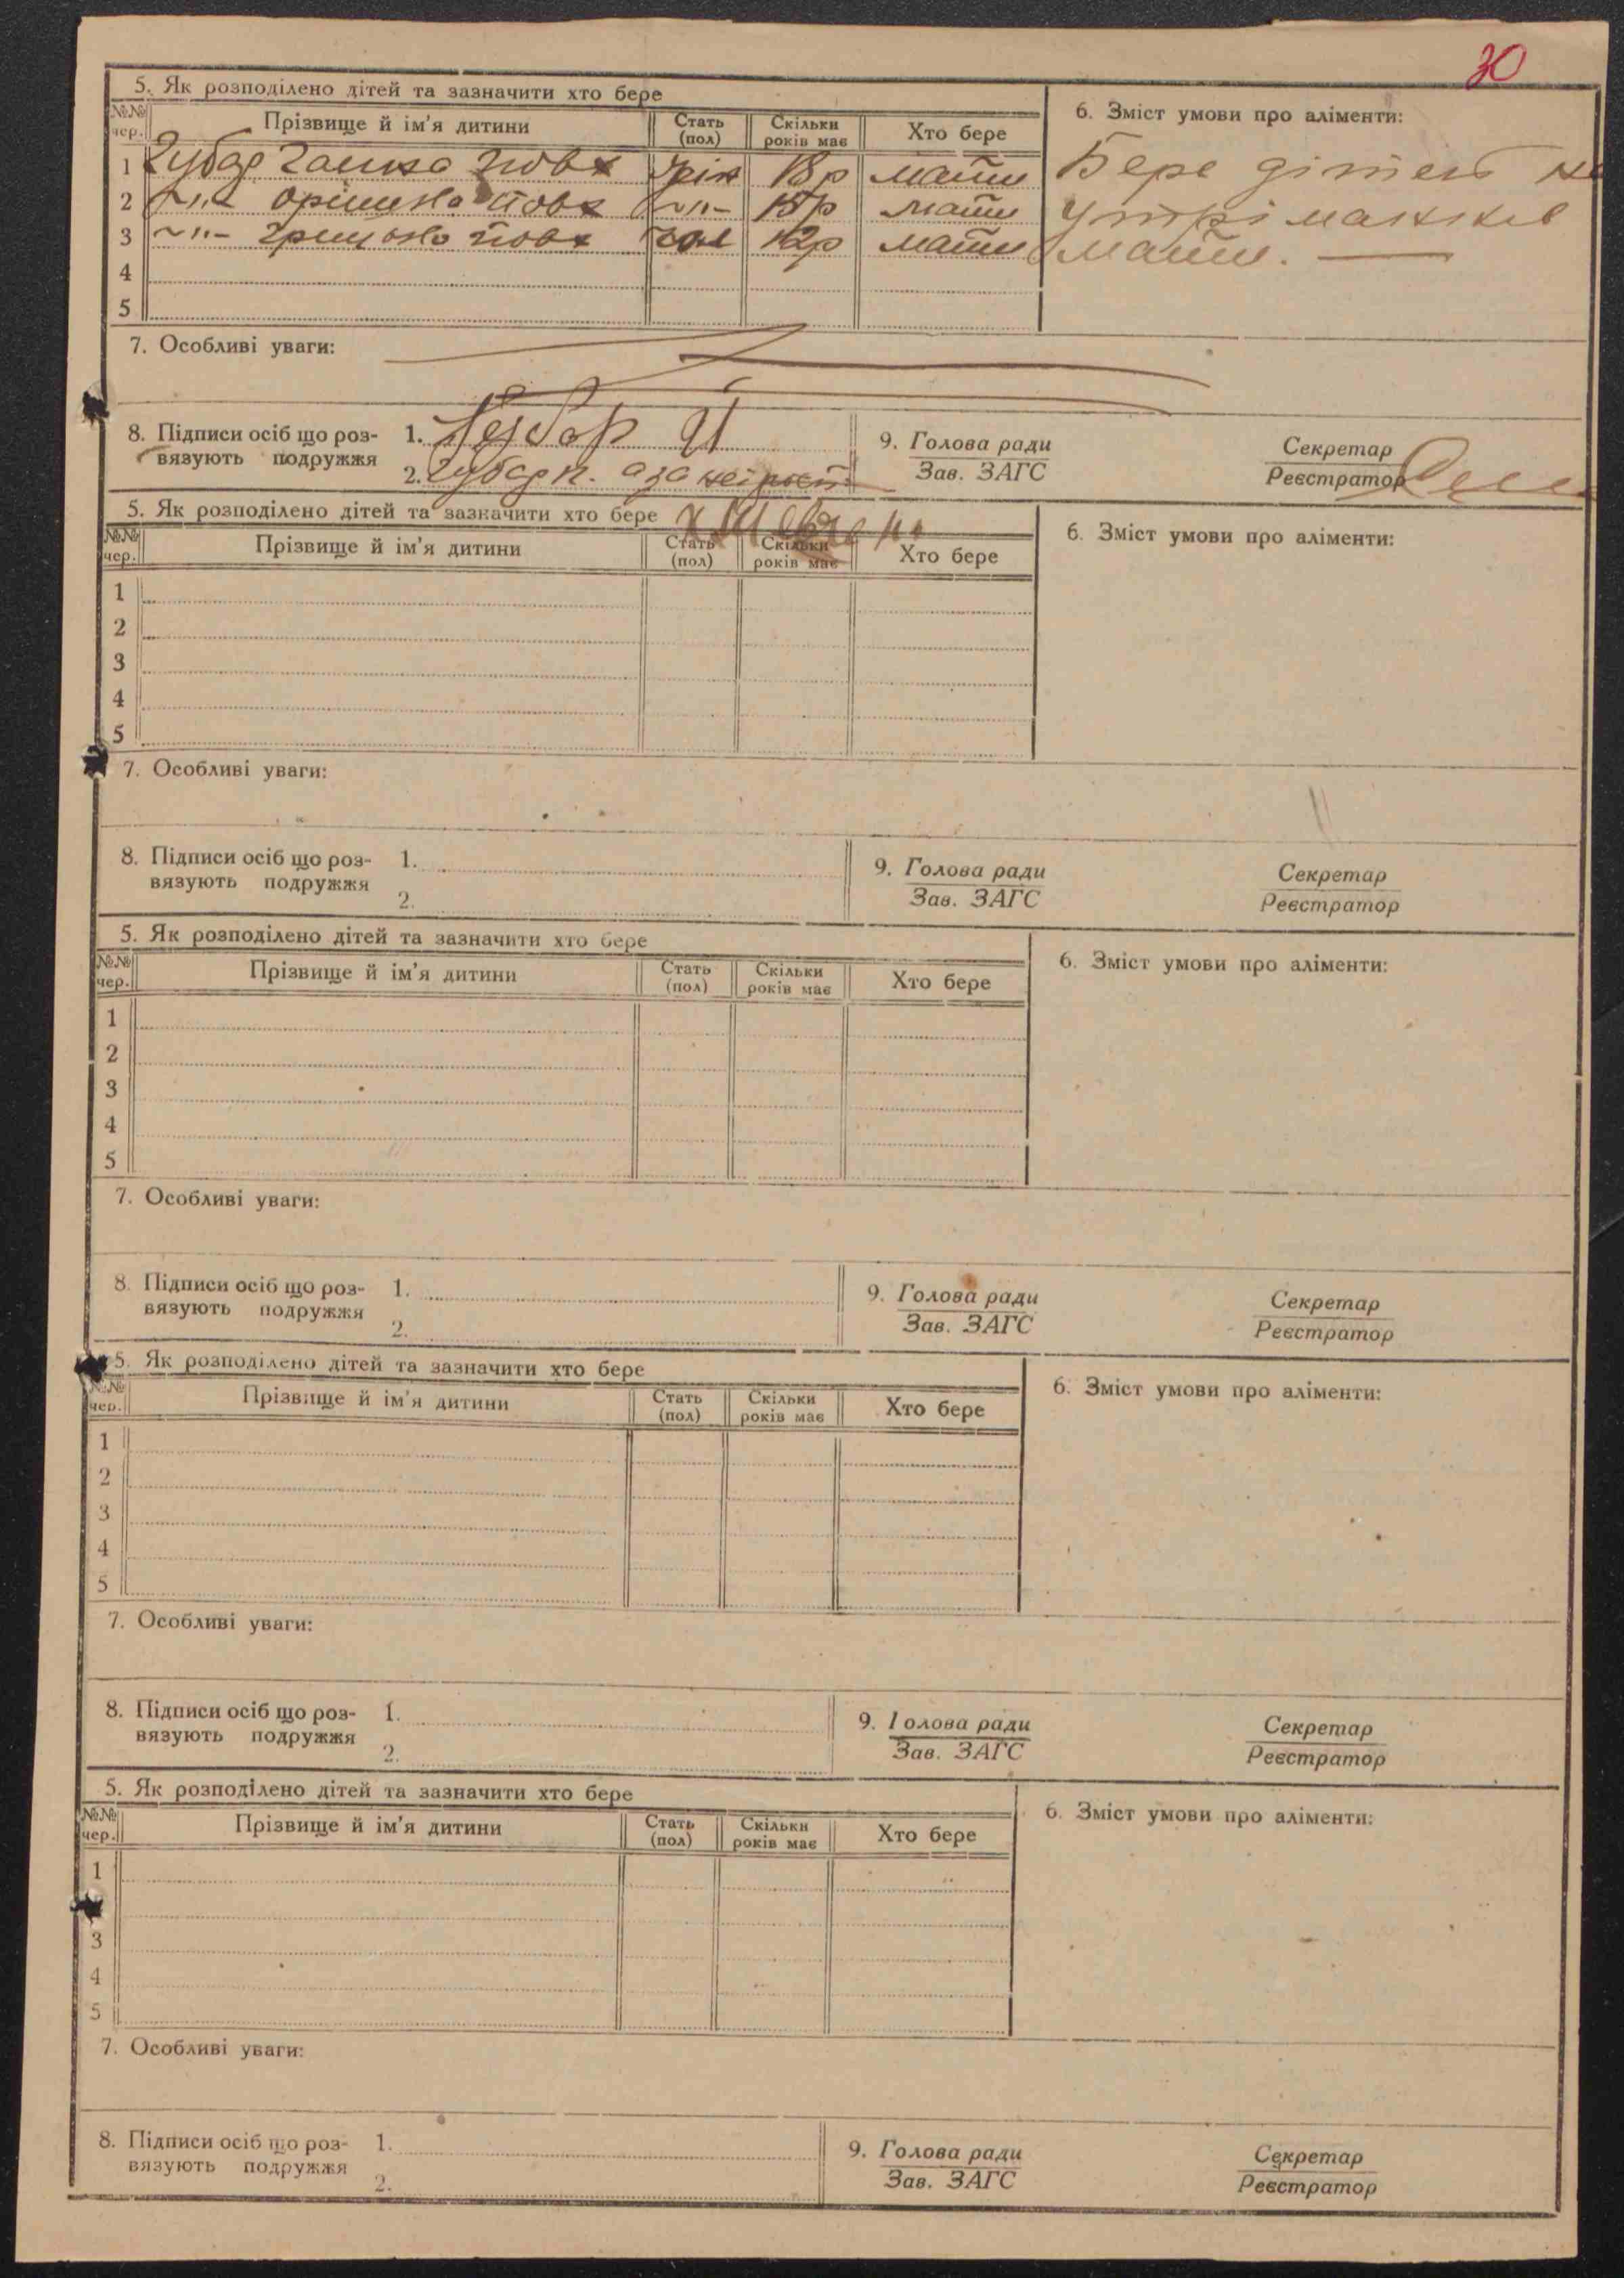 30
5. Як розподілено дітей та зазначити хто бере
6. Зміст умови про аліменти:
№№ чер. Прізвище й ім'я дитини Стать (пол) Скільки років має Хто бере
1 Губар Ганна жін 18р мати
2 –"– –"– 15р мати
3 –"– чол 12р мати
4
5
Бере дітей на
утріманнє
мати. —
7. Особливі уваги:
8. Підписи осіб що роз-
вязують подружжя
1. Губар
2. Губар П. а за
9. Голова ради
Зав. ЗАГС
Секретар
Реєстратор
5. Як розподілено дітей та зазначити хто бере
6. Зміст умови про аліменти:
№№ чер. Прізвище й ім'я дитини Стать (пол) Скільки років має Хто бере
1
2
3
4
5
7. Особливі уваги:
8. Підписи осіб що роз-
вязують подружжя
1.
2.
9. Голова ради
Зав. ЗАГС
Секретар
Реєстратор
5. Як розподілено дітей та зазначити хто бере
6. Зміст умови про аліменти:
№№ чер. Прізвище й ім'я дитини Стать (пол) Скільки років має Хто бере
1
2
3
4
5
7. Особливі уваги:
8. Підписи осіб що роз-
вязують подружжя
1.
2.
9. Голова ради
Зав. ЗАГС
Секретар
Реєстратор
5. Як розподілено дітей та зазначити хто бере
6. Зміст умови про аліменти:
№№ чер. Прізвище й ім'я дитини Стать (пол) Скільки років має Хто бере
1
2
3
4
5
7. Особливі уваги:
8. Підписи осіб що роз-
вязують подружжя
1.
2.
9. Голова ради
Зав. ЗАГС
Секретар
Реєстратор
5. Як розподілено дітей та зазначити хто бере
6. Зміст умови про аліменти:
№№ чер. Прізвище й ім'я дитини Стать (пол) Скільки років має Хто бере
1
3
4
5
7. Особливі уваги:
8. Підписи осіб що роз-
вязують подружжя
1.
2.
9. Голова ради
Зав. ЗАГС
Секретар
Реєстратор